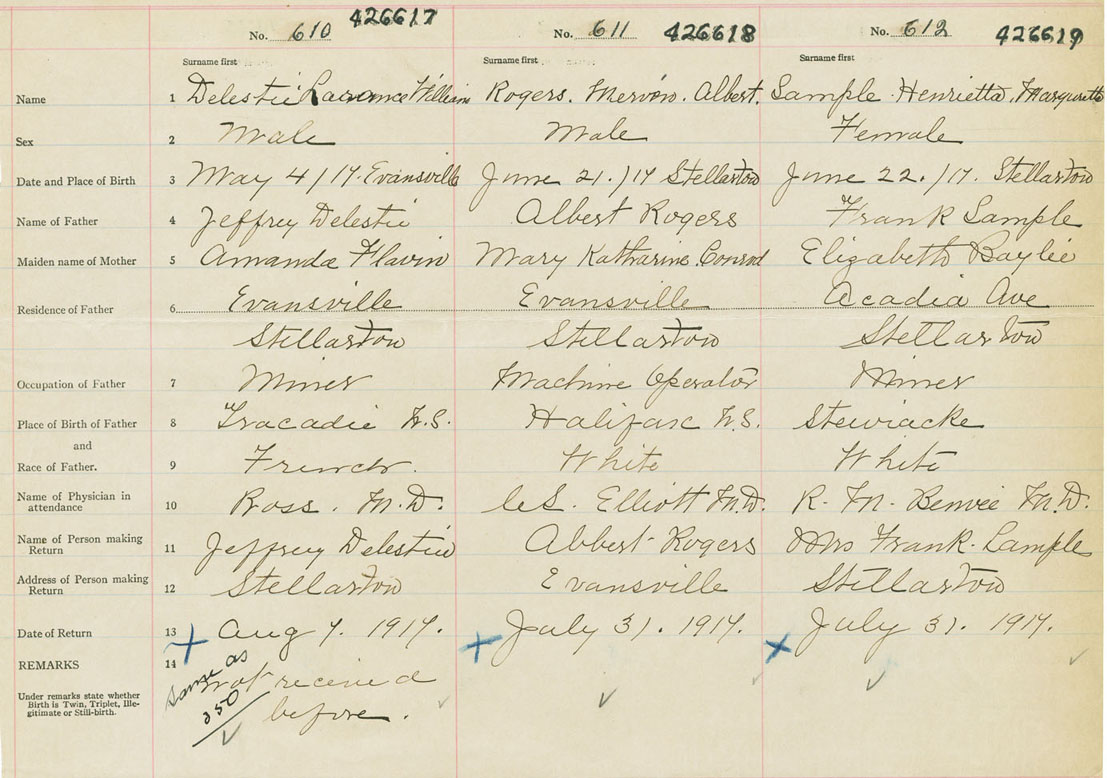 No. 610 426617 No. 611 426618 No. 612 426619
Surname first Surname first Surname first
Name 1 Delestie William Rogers. Mervin. Albert. Sample Henrietta, Marguerette
Sex 2 Male Male Female
Date and Place of Birth 3 May 4/17. Evansville June 21./17 Stellarton June 22./17. Stellarton
Name of Father 4 Jeffrey Delestie Albert Rogers Frank Sample
Maiden name of Mother 5 Amanda Flavin Mary Katharine. Conrod Elizabeth Baylie
Residence of Father 6 Evansville Evansville Acadia Ave
Stellarton Stellarton Stellarton
Occupation of Father 7 Miner Machine Operator Miner
Place of Birth of Father 8 Tracadie N.S. Halifax N.S. Stewiacke
and
Race of Father. 9 French. White White
Name of Physician in
attendance 10 Ross. M.D. Elliott M.D. R. M. Benvie M.D.
Name of Person making
Return 11 Jeffrey Delestie Abbert Rogers Mrs Frank. Sample
Address of Person making
Return 12 Stellarton Evansville Stellarton
Date of Return 13 Aug 7. 1917. July 31. 1917. July 31. 1917.
REMARKS 14 Same as
350
not received
before.
Under remarks state whether
Birth is Twin, Triplet, Ille-
gitimate or Still-birth.